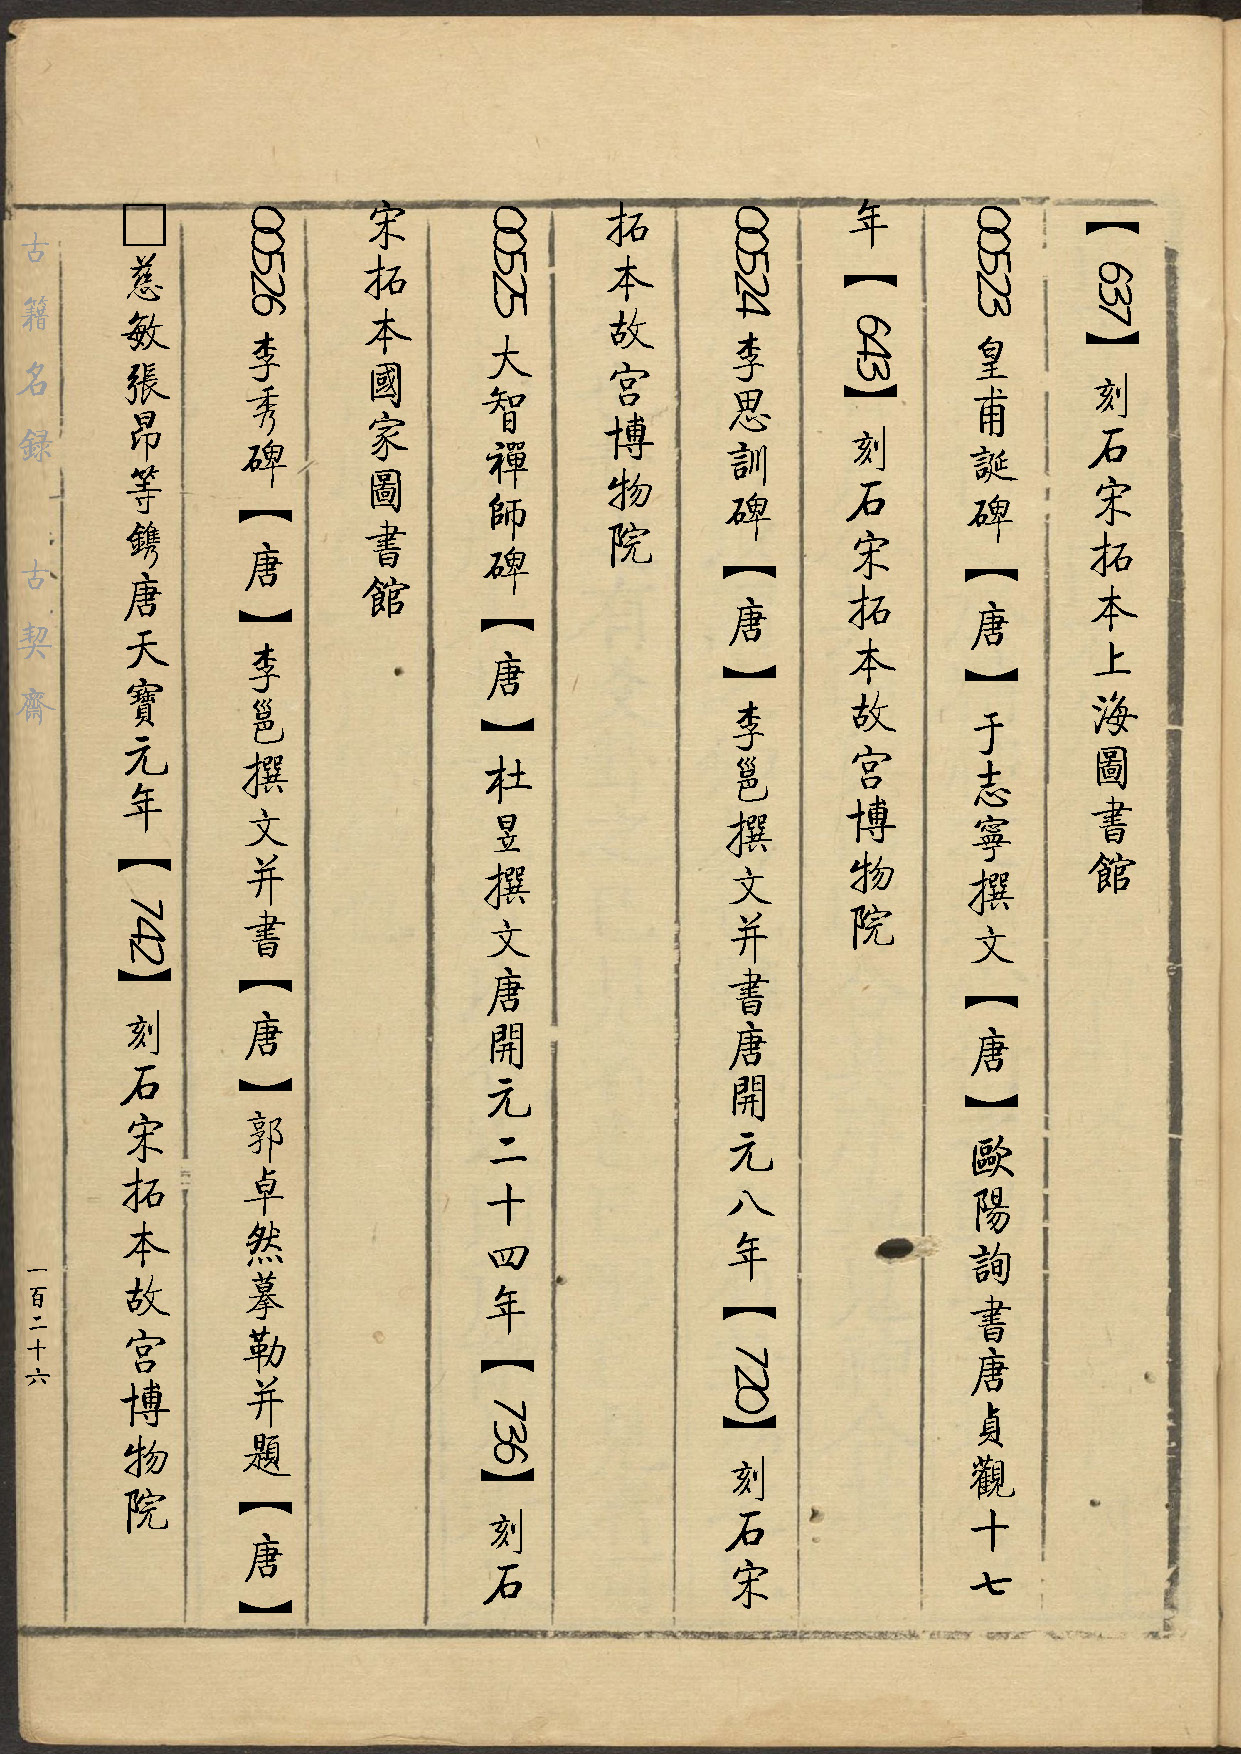 【637】刻石宋拓本上海圖書館
00523皇甫誕碑【唐】于志寧撰文【唐】歐陽詢書唐貞觀十七
年【643】刻石宋拓本故宮博物院
00524李思訓碑【唐】李邕撰文并書唐開元八年【720】刻石宋
拓本故宮博物院
00525大智禪師碑【唐】杜昱撰文唐開元二十四年【736】刻石
宋拓本國家圖書館
00526李秀碑【唐】李邕撰文并書【唐】郭卓然摹勒并題【唐】
□慈敏張昂等鐫唐天寶元年【742】刻石宋拓本故宮博物院
古籍名録 古契齋
一百二十六